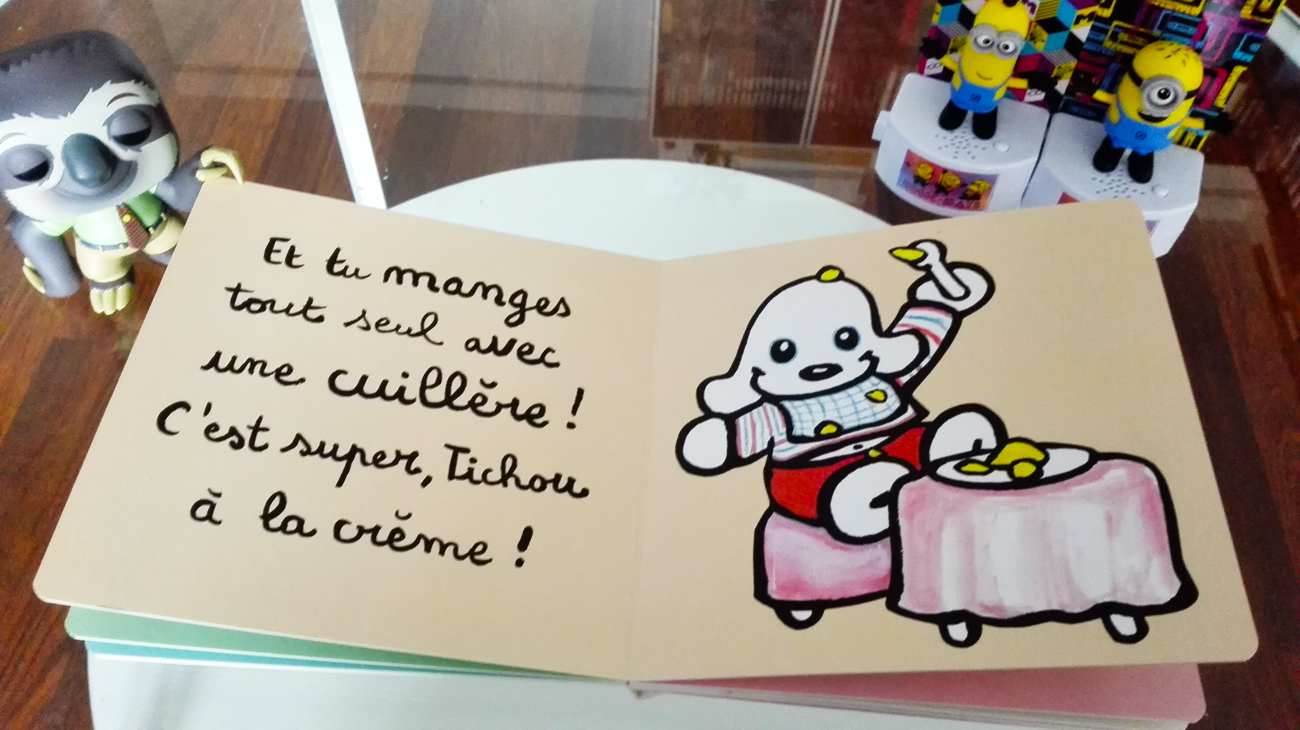 Et tu manges
tout seul avec
une cuillère !
C'est super, Tichou
à la crème !